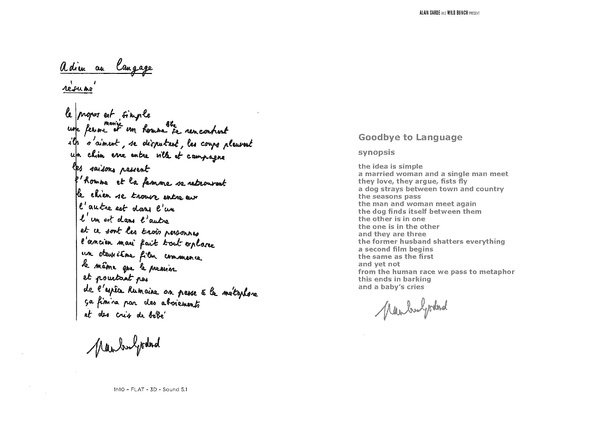 Adieu au langage
résumé
le propos est simple
une femme mariée et un homme libre se rencontrent
ils s'aiment, se disputent, les coups pleuvent
un chien erre entre ville et campagne
les saisons passent
l'homme et la femme se retrouvent
le chien se trouve entre eux
l'autre est dans l'un
l'un est dans l'autre
et ce sont les trois personnes
l'ancien mari fait tout exploser
un deuxième film commence
le même que le premier
et pourtant pas
de l'espèce humaine on passe à la métaphore
ça finira par des aboiements
et des cris de bébé
Jean-Luc Godard
1h10 - FLAT - 3D - Sound 5.1
ALAIN SARDE and WILD BUNCH PRESENT
Goodbye to Language
synopsis
the idea is simple
a married woman and a single man meet
they love, they argue, fists fly
a dog strays between town and country
the seasons pass
the man and woman meet again
the dog finds itself between them
the other is in one
the one is in the other
and they are three
the former husband shatters everything
a second film begins
the same as the first
and yet not
from the human race we pass to metaphor
this ends in barking
and a baby's cries
Jean-Luc Godard